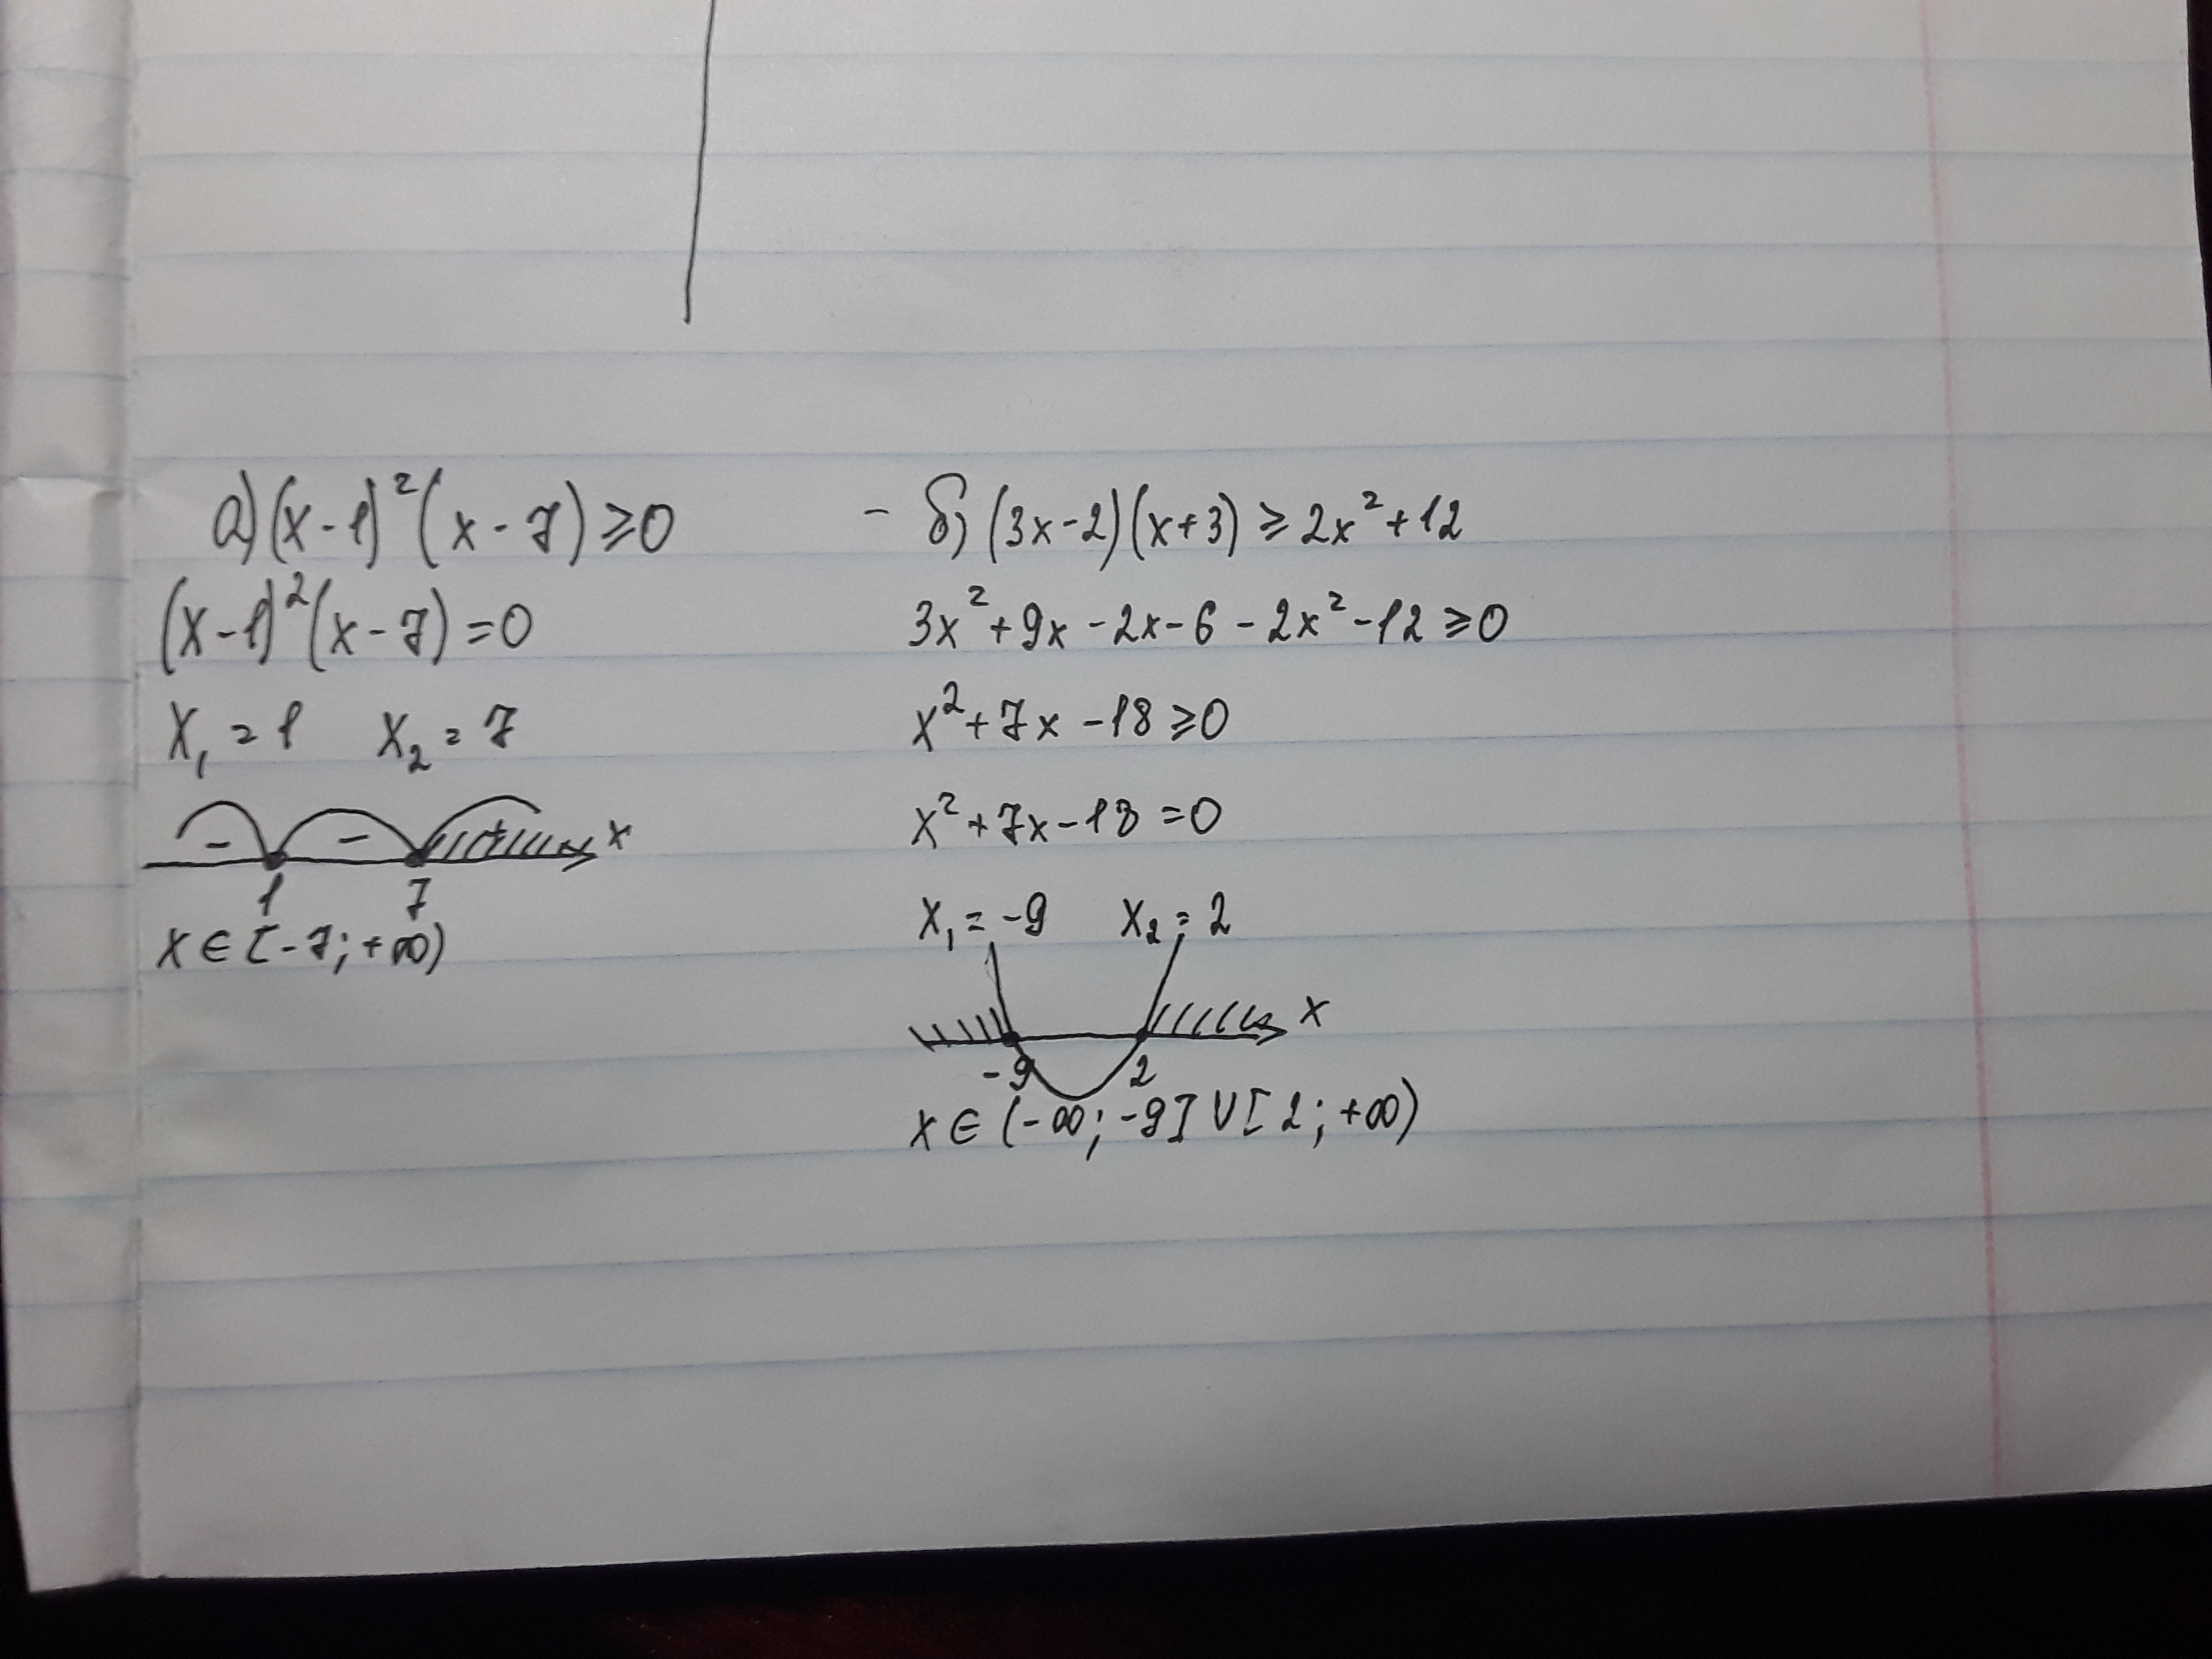 а) (x-1)²(x-7) ≥ 0
(x-1)²(x-7) = 0
x₁ = 1 x₂ = 7
- - + x
1 7
x ∈ [-7; +∞)
- б) (3x-2)(x+3) ≥ 2x²+12
3x²+9x-2x-6-2x²-12 ≥ 0
x²+7x-18 ≥ 0
x²+7x-18 = 0
x₁ = -9 x₂ = 2
x
-9 2
x ∈ (-∞; -9] ∪ [2; +∞)